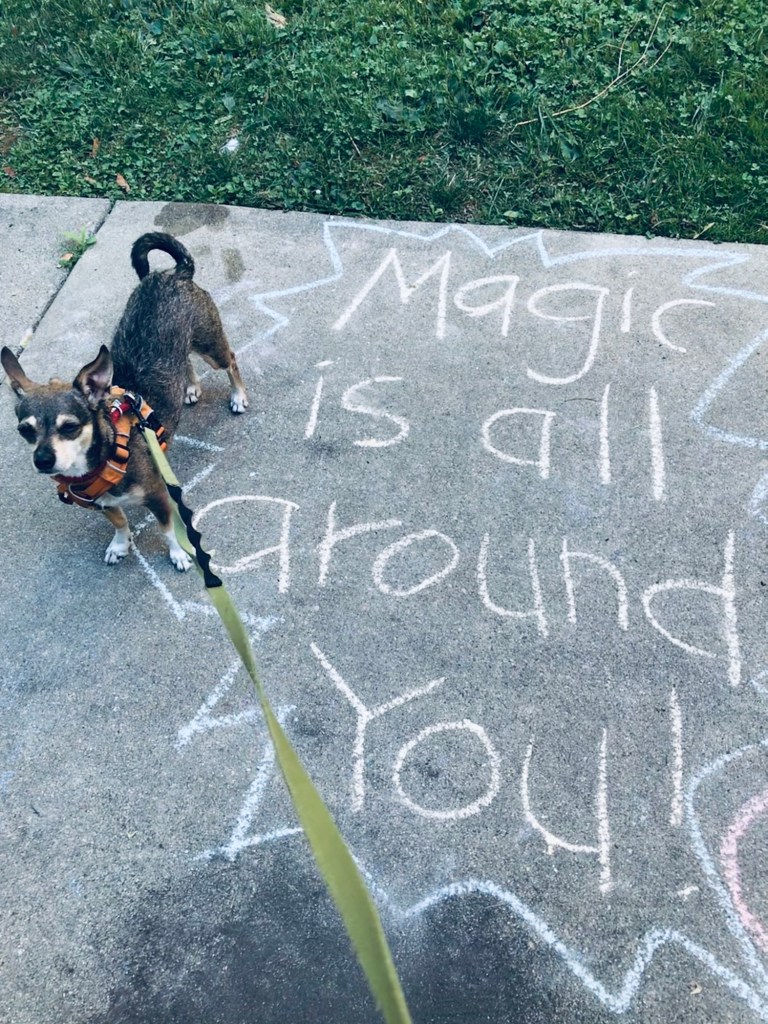 Magic
is all
around
You!